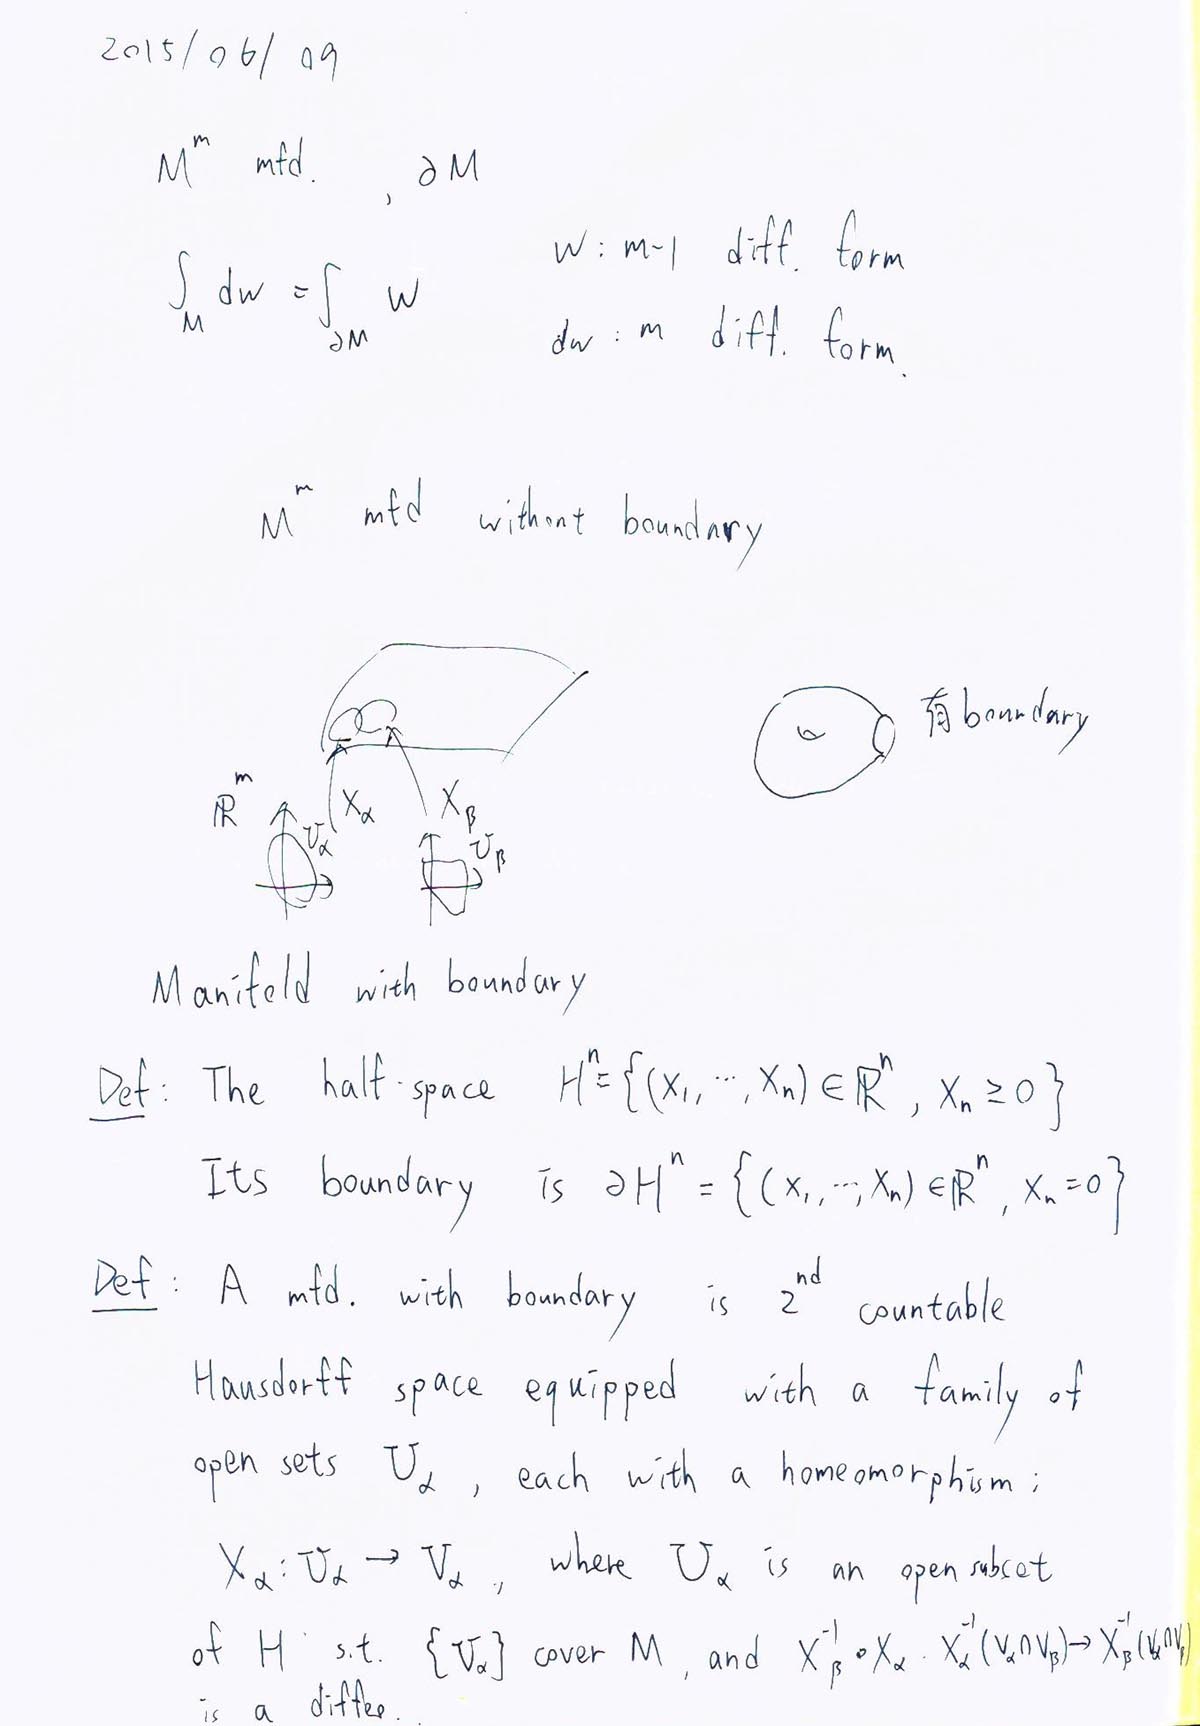 2015/06/09
M^m mfd. , ∂M
∫_M dw = ∫_∂M w
w : m-1 diff. form
dw : m diff. form.
M^m mfd without boundary
有 boundary
ℝ^m X_α X_β
U_α U_β
Manifold with boundary
Def : The half-space H^n = {(x_1, ..., x_n) ∈ ℝ^n , x_n ≥ 0}
Its boundary is ∂H^n = {(x_1, ..., x_n) ∈ ℝ^n , x_n = 0}
Def : A mfd. with boundary is 2^nd countable
Hausdorff space equipped with a family of
open sets U_α , each with a homeomorphism ;
X_α : U_α → V_α , where U_α is an open subset
of H s.t. {V_α} cover M , and X_β^-1 ∘ X_α . X_α^-1 (V_α ∩ V_β) → X_β^-1 (V_α ∩ V_β)
is a diffeo.